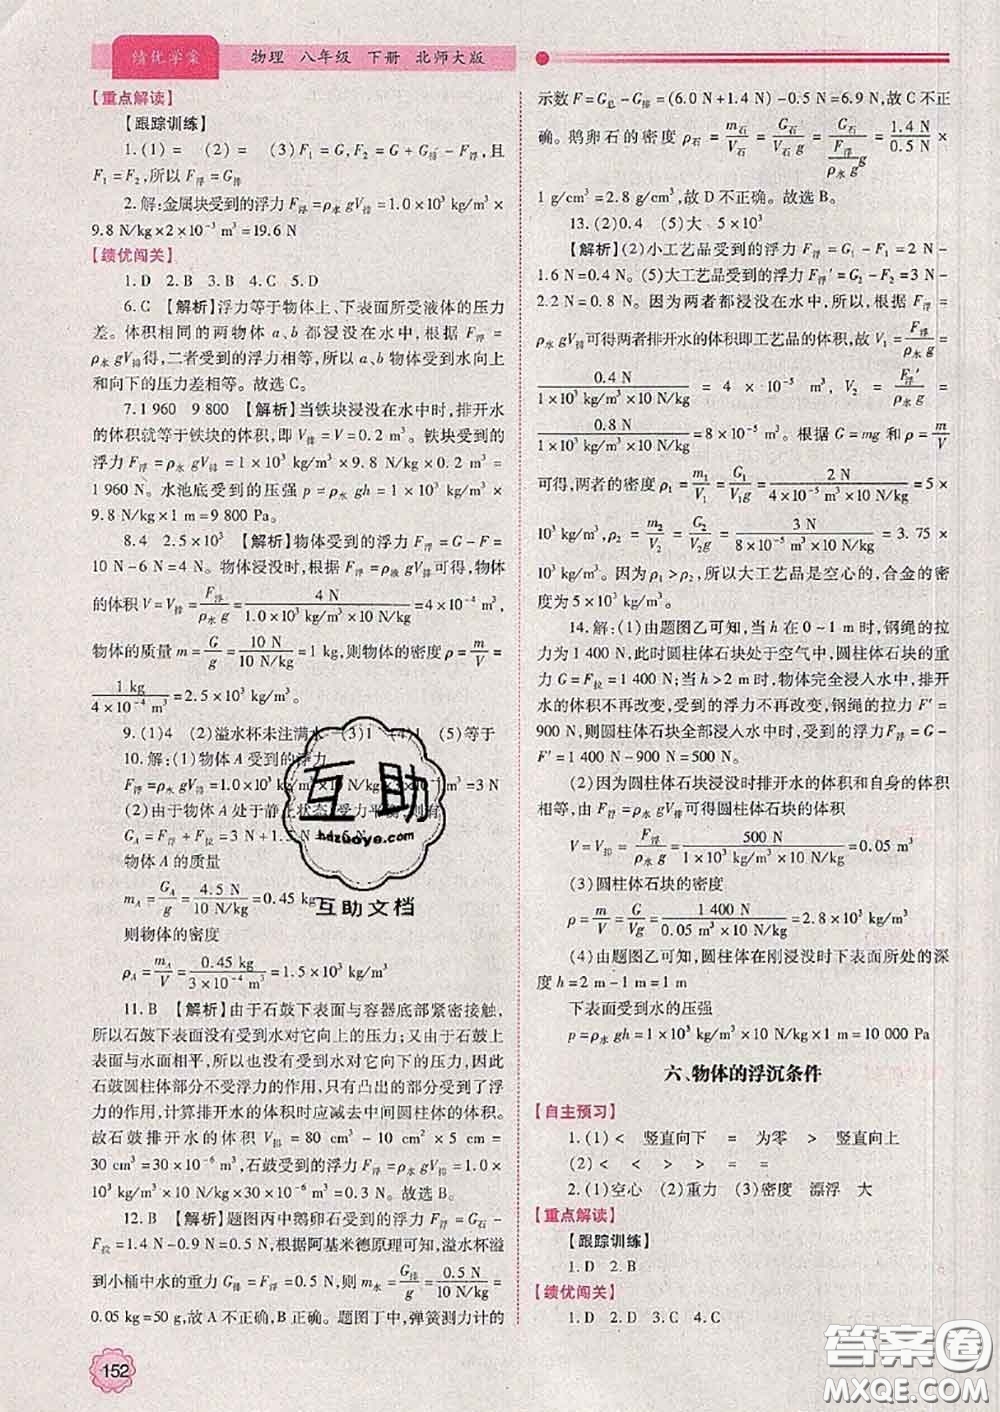 绩优学案
物理 八年级 下册 北师大版
【重点解读】
【跟踪训练】
1.(1) = (2) = (3)F₁ = G, F₂ = G + G排 − F浮, 且
F₁ = F₂, 所以 F浮 = G排
2.解:金属块受到的浮力 F浮 = ρ水 gV排 = 1.0×10³ kg/m³ ×
9.8 N/kg×2×10⁻³ m³ = 19.6 N
【绩优闯关】
1. D 2. B 3. B 4. C 5. D
6. C 【解析】浮力等于物体上、下表面所受液体的压力
差。体积相同的两物体 a、b 都浸没在水中,根据 F浮 =
ρ水 gV排得,二者受到的浮力相等,所以 a、b 物体受到水向上
和向下的压力差相等。故选 C。
7. 1 960 9 800 【解析】当铁块浸没在水中时,排开水
的体积就等于铁块的体积,即 V排 = V = 0.2 m³。铁块受到的
浮力 F浮 = ρ水 gV排 = 1×10³ kg/m³ × 9.8 N/kg × 0.2 m³ =
1 960 N。水池底受到的压强 p = ρ水 gh = 1×10³ kg/m³ ×
9.8 N/kg×1 m = 9 800 Pa。
8. 4 2.5×10³ 【解析】物体受到的浮力 F浮 = G − F =
10 N − 6 N = 4 N。物体浸没时,根据 F浮 = ρ液 gV排 可得,物体
的体积 V = V排 = F浮/(ρ水 g) = 4 N/(1.0×10³ kg/m³×10 N/kg) = 4×10⁻⁴ m³,
物体的质量 m = G/g = 10 N/(10 N/kg) = 1 kg,则物体的密度 ρ = m/V =
1 kg/(4×10⁻⁴ m³) = 2.5×10³ kg/m³。
9. (1)4 (2)溢水杯未注满水 (3)1 (4)1 (5)等于
10. 解:(1)物体 A 受到的浮力
F浮 = ρ水 gV排 = 1×10³ kg/m³ × 10 N/kg × 3×10⁻⁴ m³ = 3 N
(2)由于物体 A 处于静止状态,受力平衡,则有
G_A = F浮 + F拉 = 3 N + 1.5 N = 4.5 N
物体 A 的质量
m_A = G_A/g = 4.5 N/(10 N/kg) = 0.45 kg
则物体的密度
ρ_A = m_A/V = 0.45 kg/(3×10⁻⁴ m³) = 1.5×10³ kg/m³
11. B 【解析】由于石鼓下表面与容器底部紧密接触,
所以石鼓下表面没有受到水对它向上的压力;又由于石鼓上
表面与水面相平,所以也没有受到水对它向下的压力,因此
石鼓圆柱体部分不受浮力的作用,只有凸出的部分受到了浮
力的作用,计算排开水的体积时应减去中间圆柱体的体积。
故石鼓排开水的体积 V排 = 80 cm³ − 10 cm² × 5 cm =
30 cm³ = 30×10⁻⁶ m³,石鼓受到的浮力 F浮 = ρ水 gV排 = 1.0×
10³ kg/m³×10 N/kg×30×10⁻⁶ m³ = 0.3 N。故选 B。
12. B 【解析】题图丙中鹅卵石受到的浮力 F浮 = G石 −
F拉 = 1.4 N − 0.9 N = 0.5 N,根据阿基米德原理可知,溢水杯溢
到小桶中水的重力 G排 = F浮 = 0.5 N,则 m水 = G排/g = 0.5 N/(10 N/kg) =
0.05 kg = 50 g,故 A 不正确,B 正确。题图丁中,弹簧测力计的
152
示数 F = G总 − G排 = (6.0 N + 1.4 N) − 0.5 N = 6.9 N,故 C 不正
确。鹅卵石的密度 ρ石 = m石/V石 = (G石/g)/V石 = (G石/g)/(F浮/(ρ水 g)) = 1.4 N/0.5 N ×
1 g/cm³ = 2.8 g/cm³,故 D 不正确。故选 B。
13. (2)0.4 (5)大 5×10³
【解析】(2)小工艺品受到的浮力 F浮 = G₁ − F₁ = 2 N −
1.6 N = 0.4 N。(5)大工艺品受到的浮力 F浮′ = G₂ − F₂ = 3 N −
2.2 N = 0.8 N。因为两者都浸没在水中,所以,根据 F浮 =
ρ水 gV排可得两者排开水的体积即工艺品的体积,故 V₁ = F浮/(ρ水 g) =
0.4 N/(1×10³ kg/m³×10 N/kg) = 4×10⁻⁵ m³, V₂ = F浮′/(ρ水 g) =
0.8 N/(1×10³ kg/m³×10 N/kg) = 8×10⁻⁵ m³。根据 G = mg 和 ρ = m/V
可得,两者的密度 ρ₁ = m₁/V₁ = G₁/(V₁g) = 2 N/(4×10⁻⁵ m³×10 N/kg) = 5×
10³ kg/m³, ρ₂ = m₂/V₂ = G₂/(V₂g) = 3 N/(8×10⁻⁵ m³×10 N/kg) = 3.75×
10³ kg/m³。因为 ρ₁ > ρ₂,所以大工艺品是空心的,合金的密
度为 5×10³ kg/m³。
14. 解:(1)由题图乙可知,当 h 在 0~1 m 时,钢绳的拉
力为 1 400 N,此时圆柱体石块处于空气中,圆柱体石块的重
力 G = F拉 = 1 400 N;当 h > 2 m 时,物体完全浸入水中,排开
水的体积不再改变,受到的浮力不再改变,钢绳的拉力 F′ =
900 N,则圆柱体石块全部浸入水中时,受到的浮力 F浮 = G −
F′ = 1 400 N − 900 N = 500 N。
(2)因为圆柱体石块浸没时排开水的体积和自身的体积
相等,由 F浮 = ρ水 gV排 可得圆柱体石块的体积
V = V排 = F浮/(ρ水 g) = 500 N/(1×10³ kg/m³×10 N/kg) = 0.05 m³
(3)圆柱体石块的密度
ρ = m/V = G/(Vg) = 1 400 N/(0.05 m³×10 N/kg) = 2.8×10³ kg/m³
(4)由题图乙可知,圆柱体在刚浸没时下表面所处的深
度 h = 2 m − 1 m = 1 m
下表面受到水的压强
p = ρ水 gh = 1×10³ kg/m³×10 N/kg×1 m = 10 000 Pa
六、物体的浮沉条件
【自主预习】
1. (1) < 竖直向下 = 为零 > 竖直向上
(2) < < > > = =
2. (1)空心 (2)重力 (3)密度 漂浮 大
【重点解读】
【跟踪训练】
1. D 2. B
【绩优闯关】
1. D 2. D 3. C 4. C
互助
hdzuoye.com
互助文档
答案圈
MXQE.COM